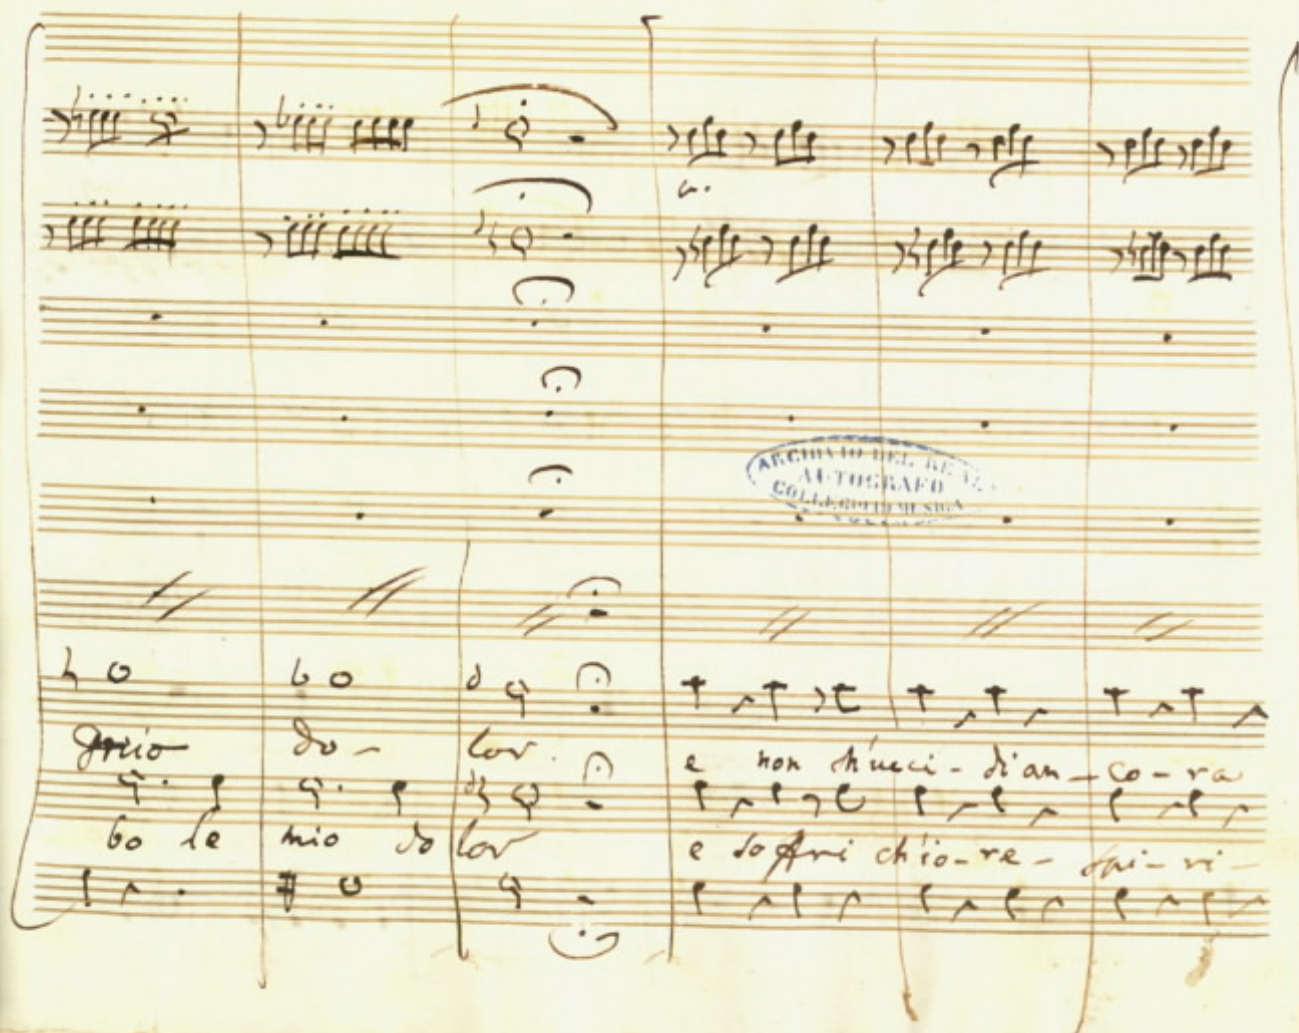 ARCHIVIO DEL REAL
AUTOGRAFO
COLLEGIO DI MUSICA
do - lor. e non m'ucci - di an - co - ra
bo le mio do lor e soffri ch'io - re - spi - ri -